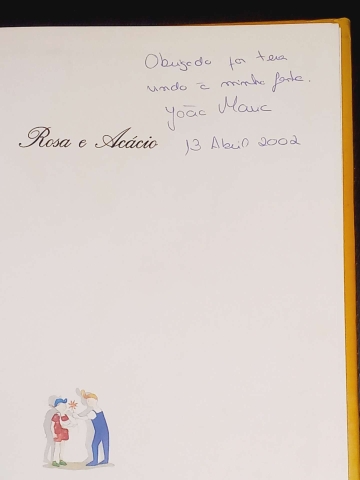 Obrigado por teres
vindo à minha festa.
João Marc
13 Abril 2002
Rosa e Acácio